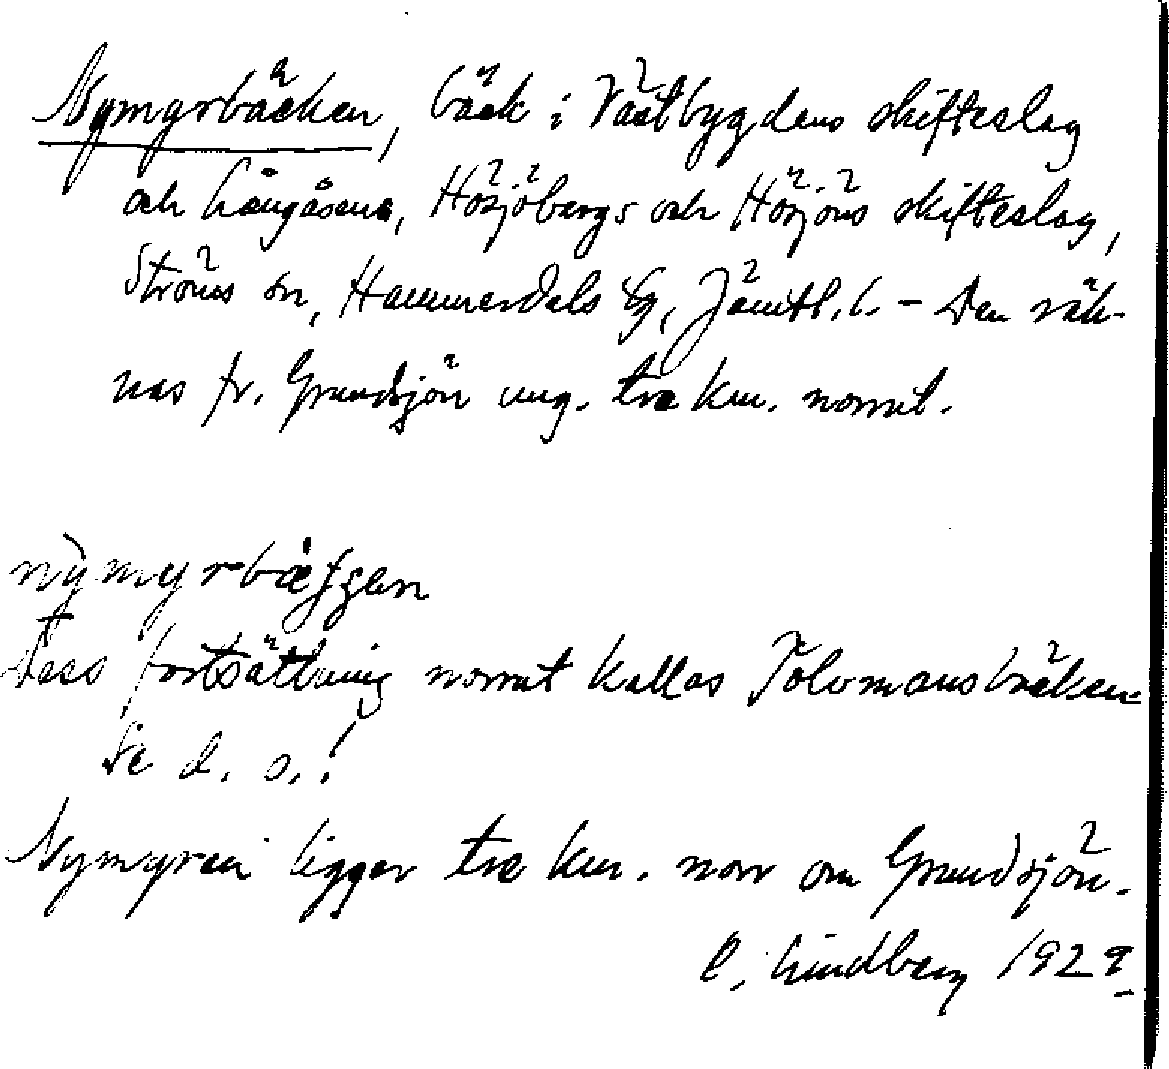 Nymyrbäcken, bäck i Västbygdens skifteslag
och Långåsens, Hösjöbergs och Hösjöns skifteslag,
Ströms sn, Hammerdals tg, Jämtl. l. – Den räk-
nas fr. Grundsjön ung. tre km. norrut.
Dess fortsättning norrut kallas Tolvmansbäcken
Se d. o.!
Nymyren ligger tre km. norr om Grundsjön.
C. Lindberg 1929